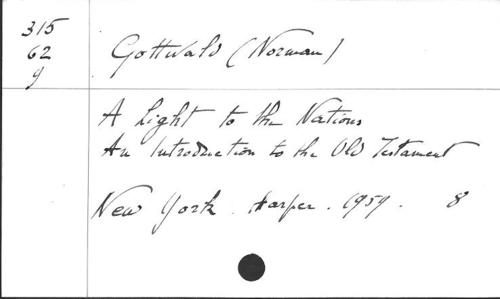 315
62
9
Gottwald (Norman)
A Light to the Nations
An Introduction to the Old Testament
New York. Harper. 1959. 8